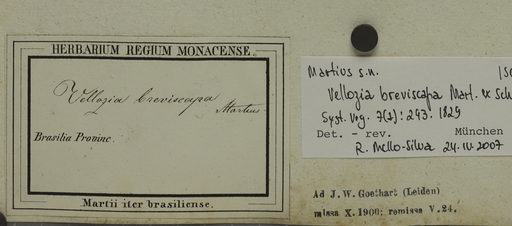 HERBARIUM REGIUM MONACENSE.
Vellozia breviscapa
Martius
Brasilia Provinc.
Martii iter brasiliense.
Martius s.n.
Vellozia breviscapa Mart. ex Sch
Syst. veg. 7(2): 293. 1829
Det. - rev. München
R. Mello-Silva 24.III.2007
Ad J. W. Goethart (Leiden)
missa X.1900; remissa V.24.